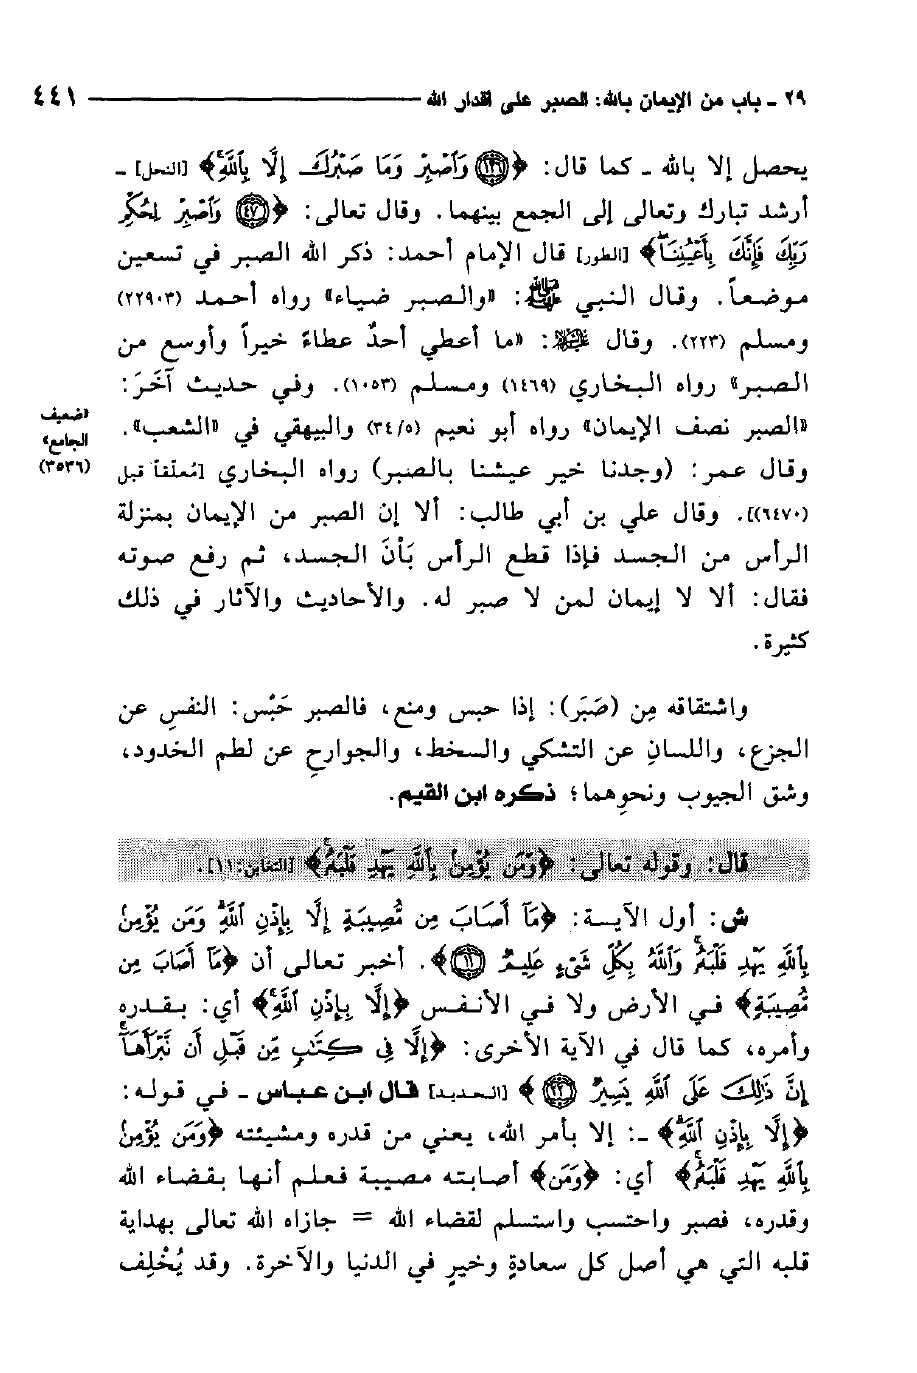 ٢٩ - باب من الإيمان بالله: الصبر على أقدار الله ٤٤١
يحصل إلا بالله - كما قال: ﴿(١٢٦) وَٱصۡبِرۡ وَمَا صَبۡرُكَ إِلَّا بِٱللَّهِۚ﴾ [النحل] -
أرشد تبارك وتعالى إلى الجمع بينهما. وقال تعالى: ﴿(٤٧) وَٱصۡبِرۡ لِحُكۡمِ
رَبِّكَ فَإِنَّكَ بِأَعۡيُنِنَاۖ﴾ [الطور] قال الإمام أحمد: ذكر الله الصبر في تسعين
موضعاً. وقال النبي ﷺ: «والصبر ضياء» رواه أحمد (٢٢٩٠٣)
ومسلم (٢٢٣). وقال ﷺ: «ما أعطي أحدٌ عطاءً خيراً وأوسع من
الصبر» رواه البخاري (١٤٦٩) ومسلم (١٠٥٣). وفي حديث آخَرَ:
«الصبر نصف الإيمان» رواه أبو نعيم (٣٤/٥) والبيهقي في «الشعب».
«ضعيف
الجامع»
(٣٥٣٦)
وقال عمر: (وجدنا خير عيشنا بالصبر) رواه البخاري [مُعلَّقاً قبل
(٦٤٧٠)]. وقال علي بن أبي طالب: ألا إن الصبر من الإيمان بمنزلة
الرأس من الجسد فإذا قطع الرأس بَأنَ الجسد، ثم رفع صوته
فقال: ألا لا إيمان لمن لا صبر له. والأحاديث والآثار في ذلك
كثيرة.
واشتقاقه مِن (صَبَر): إذا حبس ومنع، فالصبر حَبْس: النفسِ عن
الجزع، واللسانِ عن التشكي والسخط، والجوارحِ عن لطم الخدود،
وشق الجيوب ونحوِهما؛ ذكره ابن القيم.
قال: وقوله تعالى: ﴿وَمَن يُؤۡمِنۢ بِٱللَّهِ يَهۡدِ قَلۡبَهُۥۚ﴾ [التغابن: ١١].
ش: أول الآيـة: ﴿مَآ أَصَابَ مِن مُّصِيبَةٍ إِلَّا بِإِذۡنِ ٱللَّهِۗ وَمَن يُؤۡمِنۢ
بِٱللَّهِ يَهۡدِ قَلۡبَهُۥۚ وَٱللَّهُ بِكُلِّ شَيۡءٍ عَلِيمٞ (١١)﴾. أخبر تعالى أن ﴿مَآ أَصَابَ مِن
مُّصِيبَةٍ﴾ في الأرض ولا في الأنفس ﴿إِلَّا بِإِذۡنِ ٱللَّهِۗ﴾ أي: بقدره
وأمره، كما قال في الآية الأخرى: ﴿إِلَّا فِي كِتَٰبٖ مِّن قَبۡلِ أَن نَّبۡرَأَهَآۚ
إِنَّ ذَٰلِكَ عَلَى ٱللَّهِ يَسِيرٞ (٢٢)﴾ [الحديد] قال ابن عباس - في قوله:
﴿إِلَّا بِإِذۡنِ ٱللَّهِۗ﴾ -: إلا بأمر الله، يعني من قدره ومشيئته ﴿وَمَن يُؤۡمِنۢ
بِٱللَّهِ يَهۡدِ قَلۡبَهُۥۚ﴾ أي: ﴿وَمَن﴾ أصابته مصيبة فعلم أنها بقضاء الله
وقدره، فصبر واحتسب واستسلم لقضاء الله = جازاه الله تعالى بهداية
قلبه التي هي أصل كل سعادةٍ وخيرٍ في الدنيا والآخرة. وقد يُخْلِف